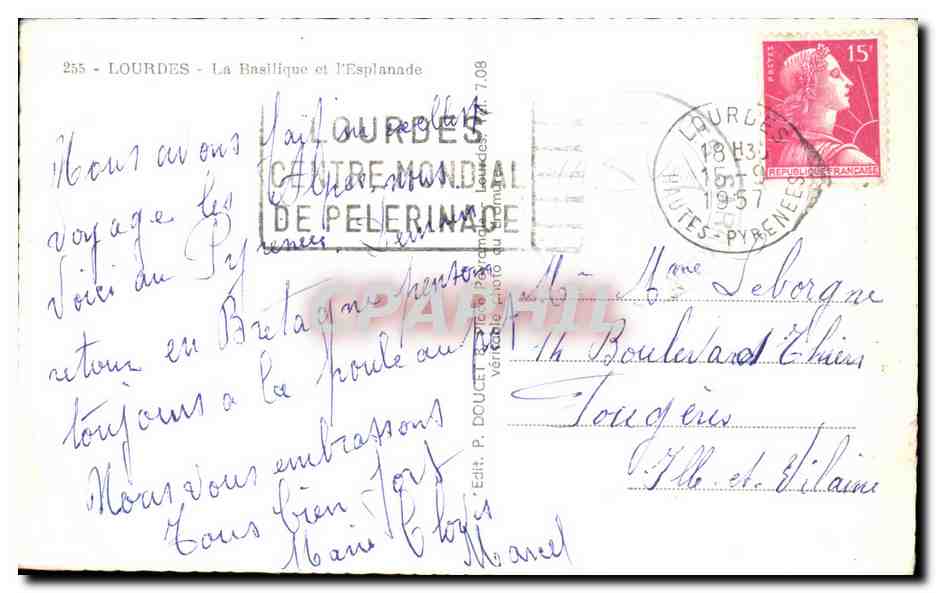 255 - LOURDES - La Basilique et l'Esplanade
LOURDES
CENTRE MONDIAL
DE PELERINAGE
LOURDES
18 H30
15-9
1957
HAUTES-PYRENEES
POSTES
15F
REPUBLIQUE FRANÇAISE
Nous avons fait un excellent
voyage les Alpes, nous
voici au Pyrenees. Demain
retour en Bretagne pensons
toujours a la poule au pot
Nous vous embrassons
Tous bien fort
Marie
Marcel
Edit. P. DOUCET Place Peyramale Lourdes Tél. 7.08
véritable photo au bromure
CPAPHIL
Mr Mme Leborgne
14 Boulevard Thiers
Fougères
Ille-et-Vilaine